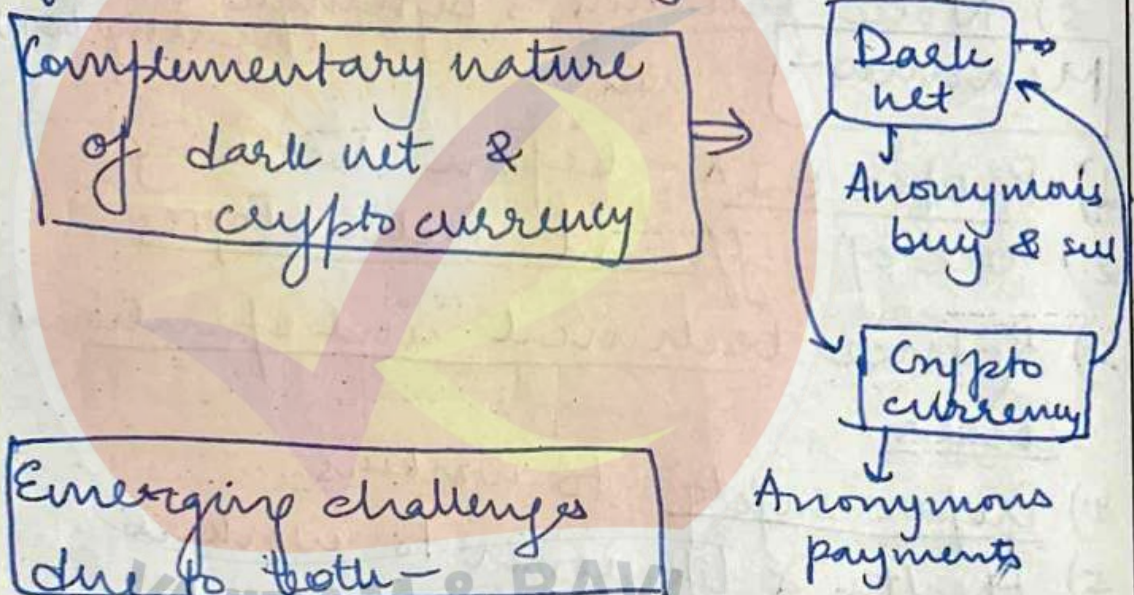 Complementary nature
of dark net &
crypto currency
Dark
net
Anonymous
buy & sell
Crypto
currency
Anonymous
payments
Emerging challenges
due to both -
& RAVI